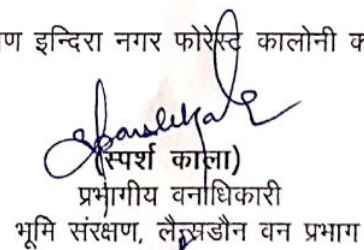 ण इन्दिरा नगर फोरेस्ट कालोनी क
(स्पर्श काला)
प्रभागीय वनाधिकारी
भूमि संरक्षण, लैन्सडौन वन प्रभाग